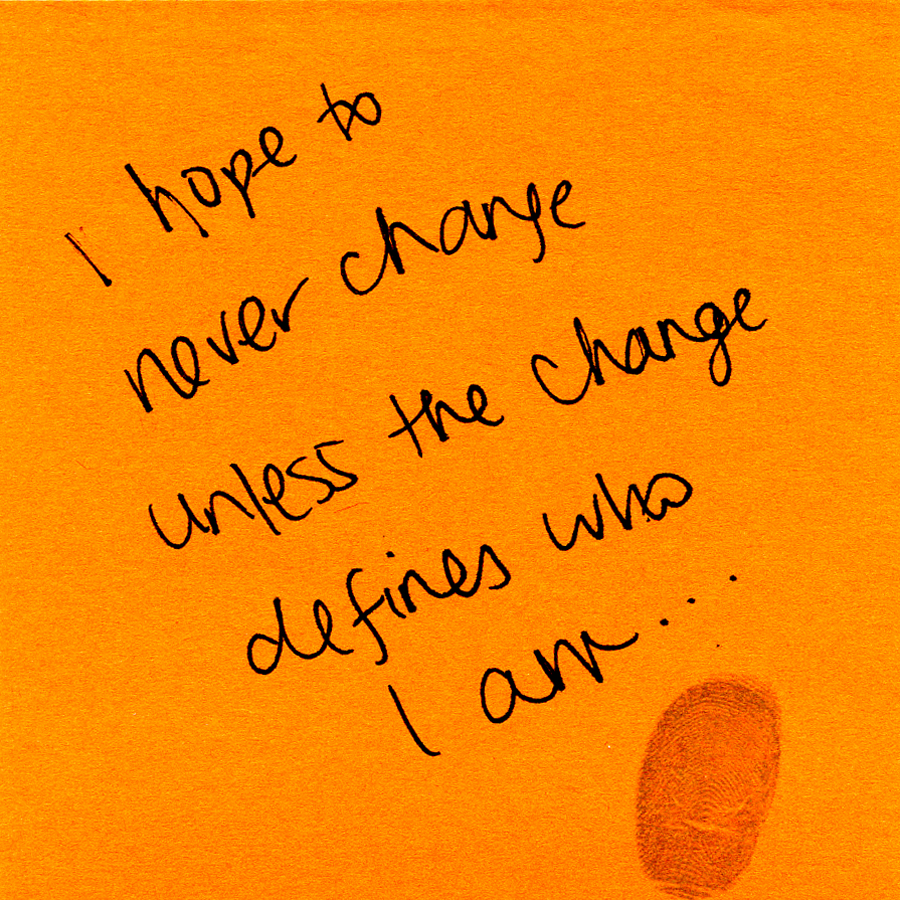 I hope to
never change
unless the change
defines who
I am...